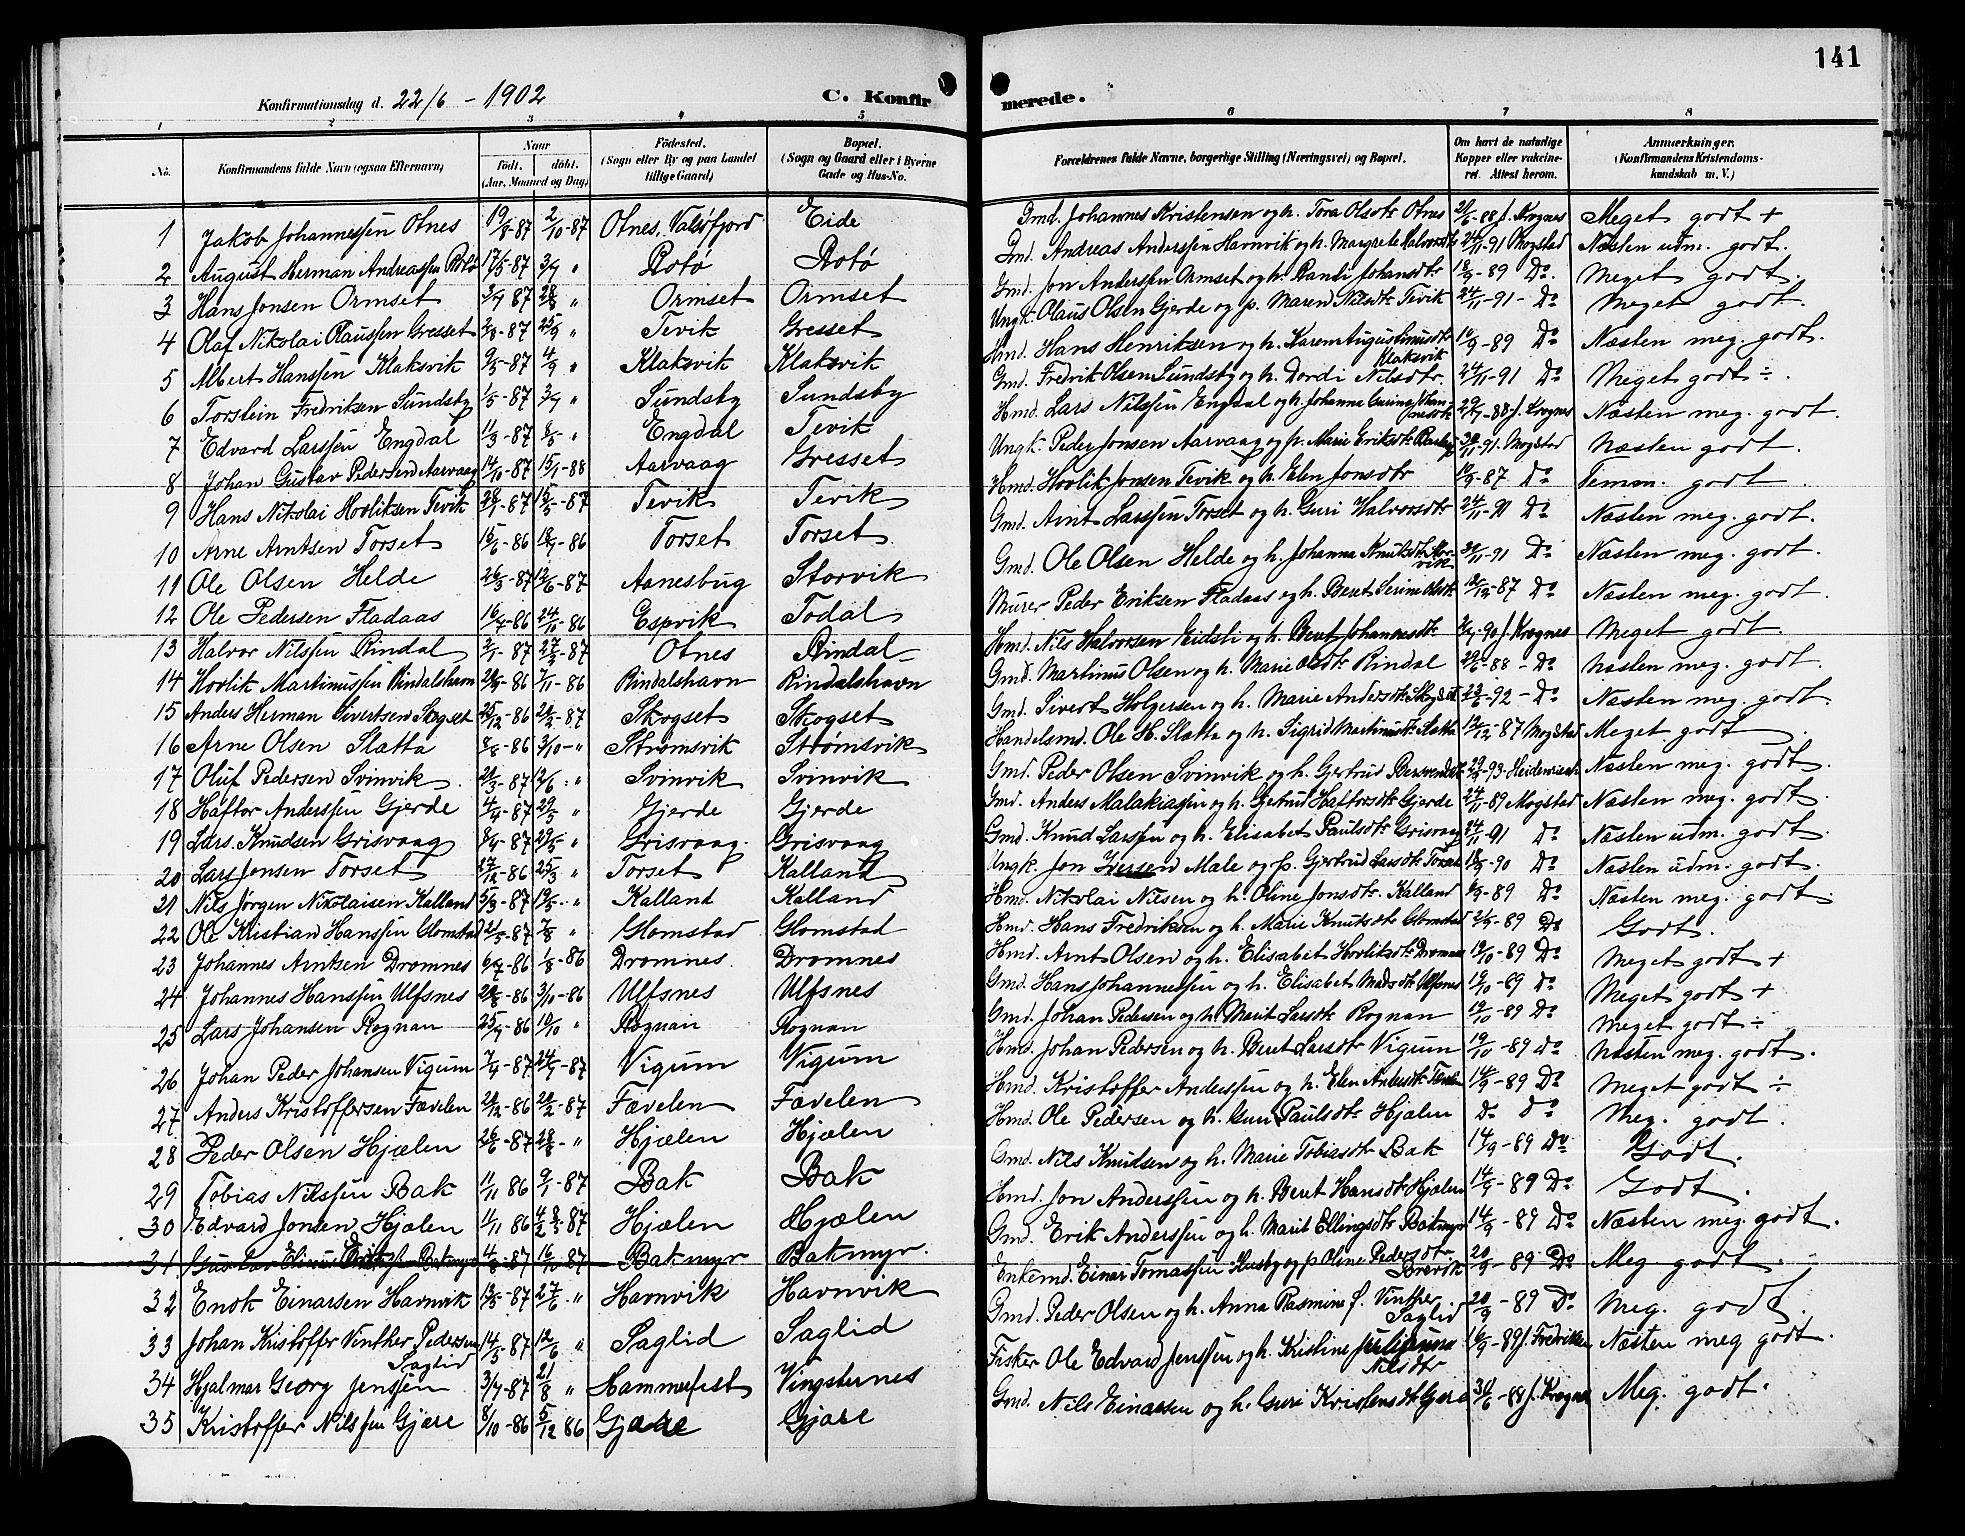 141
Konfirmationsdag d. 22/6 - 1902 C. Konfirmerede.
1 2 3 4 5 6 7 8
No. Konfirmandens fulde Navn (ogsaa Efternavn) Naar født. døbt. (Aar, Maaned og Dag) Fødested. (Sogn eller By og paa Landet tillige Gaard) Bopæl. (Sogn og Gaard eller i Byerne Gade og Hus-No. Forældrenes fulde Navne, borgerlige Stilling (Næringsvei) og Bopæl. Om havt de naturlige Kopper eller vaccineret. Attest herom. Anmærkninger. (Konfirmandens Kristendomskundskab m. V.)
1 Jakob Johannessen Otnes 19/8-87 2/10-87 Otnes, Valsøfjord Eide Gmd. Johannes Kristensen og h. Tora Olsdtr Otnes 21/6-88 J. Krognes Meget godt +
2 August Herman Andreassen Rotø 17/5-87 3/7 " Rotø Rotø Gmd. Andreas Anderssen Havnvik og h. Margrete Halvorsdtr 24/11-91 Mogstad Næsten udm. godt.
3 Hans Jonsen Ormset 3/7 87 28/8 " Ormset Ormset Gmd. Jon Anderssen Ormset og h. Randi Johansdtr 18/9-89 Do. Meget godt.
4 Olaf Nikolai Olaussen Gresset 2/8-87 25/9 " Tevik Gresset Ungk. Olaus Olsen Gjerde og p. Maren Nilsdtr Tevik 24/11-91- Do Meget godt.
5 Albert Hanssen Klaksvik 9/5-87 4/9 " Klaksvik Klaksvik Hmd. Hans Henriksen og h. Karen Augustinusdtr Klaksvik 16/9-89 Do Næsten meg. godt.
6 Torstein Fredriksen Sundsby 1/5-87 3/7 " Sundsby Sundsby Gmd. Fredrik Olsen Sundsby og h. Dordi Nilsdtr. 24/11-91 Do Meget godt ÷
7 Edvard Larssen Engdal 11/3-87 8/5 " Engdal Tevik Hmd. Lars Nilssen Engdal og h. Johanna 29/7-88 J. Krognes Næsten meg. godt.
8 Johan Gustav Pedersen Aarvaag 14/10-87 15/1-88 Aarvaag Gresset Ungk. Peder Jonsen Aarvaag og p. Marie Eriksdtr 30/11-91 Mogstad Næsten godt
9 Hans Nikolai Hovliksen Tevik 28/1-87 15/5-87 Tevik Tevik Hmd. Hovlik Jonsen Tevik og h. Elen Jonsdtr 10/9-87 Do Temm. godt
10 Arne Arntsen Torset 15/6-86 18/7-86 Torset Torset Gmd. Arnt Larssen Torset og h. Guri Halvorsdtr 24/11-91 Do Næsten meg. godt.
11 Ole Olsen Helde 26/3-87 12/6-87 Aanesbug Storvik Gmd. Ole Olsen Helde og h. Johanna Knutsdtr Storvik 30/11-91 Do Næsten meg. godt.
12 Ole Pedersen Fladaas 16/7-86 24/10-86 Espvik Todal Murer Peder Eriksen Fladaas og h. Beret Serine Olsdtr 12/12-87 Do Næsten meg. godt.
13 Halvor Nilssen Rindal 2/1-87 27/3-87 Otnes Rindal Hmd. Nils Halvorsen Eidsli og h. Beret Johannesdtr -90 J. Krognes Meget godt.
14 Hovlik Martinussen Rindalshavn 21/9-86 7/11-86 Rindalshavn Rindalshavn Gmd. Martinus Olsen og h. Marie Olsdtr Rindal 29/6-88- Do Næsten meg. godt.
15 Anders Herman Sivertsen Skogset 25/12-86 20/2-87 Skogset Skogset Gmd. Sivert Holgersen og h. Marie Andersdtr Skogset 23/6-92- Do Næsten meg. godt.
16 Arne Olsen Slatta 8/8-86 3/10-" Strømsvik Strømsvik Handelsmd. Ole H. Slatta og h. Sigrid Martinusdtr Slatta 12/12-87 Mogstad Meget godt.
17 Oluf Pedersen Svinvik 21/3-87 12/6 " Svinvik Svinvik Gmd. Peder Olsen Svinvik og h. Gjertrud -93 Heidenreich Næsten meg. godt.
18 Haftor Anderssen Gjerde 4/4-87 29/5 " Gjerde Gjerde Gmd. Anders Malakiassen og h. Gjetrud Haftorsdtr Gjerde 24/11-89 Mogstad Næsten meg. godt.
19 Lars Knudsen Grisvaag 8/4-87 29/5 " Grisvaag Grisvaag Gmd. Knud Larssen og h. Elisabet Paulsdtr Grisvaag 24/11-91 Do Næsten udm. godt.
20 Lars Jonsen Torset 27/12-86 25/3 " Torset Kalland Ungk. Jon Iversen Male og p. Gjertrud Larsdtr Torset 18/9-90 Do Næsten udm. godt.
21 Nils Jørgen Nikolaisen Kalland 5/3-87 19/5-" Kalland Kalland Hmd. Nikolai Nilsen og h. Oline Jonsdtr. Kalland -89 Do Næsten meg. godt.
22 Ole Kristian Hanssen Glomstad 21/5-87 7/8 " Glomstad Glomstad Hmd. Hans Fredriksen og h. Marie Knutsdtr Glomstad 2/9-89 Do Godt.
23 Johannes Arntsen Dromnes 6/7-86 1/8-86 Dromnes. Dromnes Hmd. Arnt Olsen og h. Elisabet Hovliksdtr Dromnes 19/10-89 Do Meget godt +
24 Johannes Hanssen Ulfsnes 20/8-86 3/10-86 Ulfsnes Ulfsnes Gmd. Hans Johannessen og h. Elisabet Madsdtr Ulfsnes 19/10-89 Do Meget godt +
25 Lars Johansen Rognan 25/9-86 10/10 " Rognan Rognan Gmd. Johan Pedersen og h. Marit Larsdtr Rognan 19/10-89 Do Meget godt ÷
26 Johan Peder Johansen Vigum 7/4-87 24/7-87 Vigum Vigum Hmd. Johan Pedersen og h. Beret Larsdtr Vigum 19/10-89 Do Næsten meg. godt.
27 Anders Kristoffersen Fævelen 20/12-86 20/2-87 Fævelen Fævelen Hmd. Kristoffer Anderssen og h. Elen Andersdtr 14/9-89 Do Meget godt ÷
28 Peder Olsen Hjælen 26/6-87 28/8-" Hjælen Hjælen Hmd. Ole Pedersen og h. Guri Paulsdtr Hjælen Do Do Meg. godt.
29 Tobias Nilssen Bak 11/11 86 9/1-87 Bak Bak Gmd. Nils Knudsen og h. Marie Tobiasdtr Bak 14/9-89 Do Godt.
30 Edvard Jonsen Hjælen 11/11 86 87 Hjælen Hjælen Hmd. Jon Anderssen og h. Beret Hansdtr Hjælen 14/9-89 Do Godt.
31 Gustav Bakmyr 4/8-87 16/10-87 Bakmyr Bakmyr. Gmd. Erik Anderssen og h. Marit Ellingsdtr Bakmyr 14/9-89 Do Næsten meg. godt.
32 Enok Einarsen Havnvik 13/5-87 27/6 " Havnvik Havnvik Enkemd. Einar Tomassen Husby og p. Oline Pedersdtr Brevik 20/9-89 Do Meg godt.
33 Johan Kristoffer Vinther Pedersen Saglid 14/5-87 12/6 " Saglid Saglid Gmd. Peder Olsen og h. Anna Rasmine f. Vinther Saglid 20/9-89 Do Meg. godt.
34 Hjalmar Georg Jenssen 3/7-87 21/8 " Hammerfest Vingsternes Fisker Ole Edvard Jenssen og h. Kristine Julianna Nilsdtr 16/9-89 J. Fredriksen Næsten meg godt.
35 Kristoffer Nilssen Gjære 8/10-86 5/12 86 Gjære Gjære Gmd. Nils Einarsen og h. Guri Kristensdtr Gjære -88 J. Krognes Meg. godt.